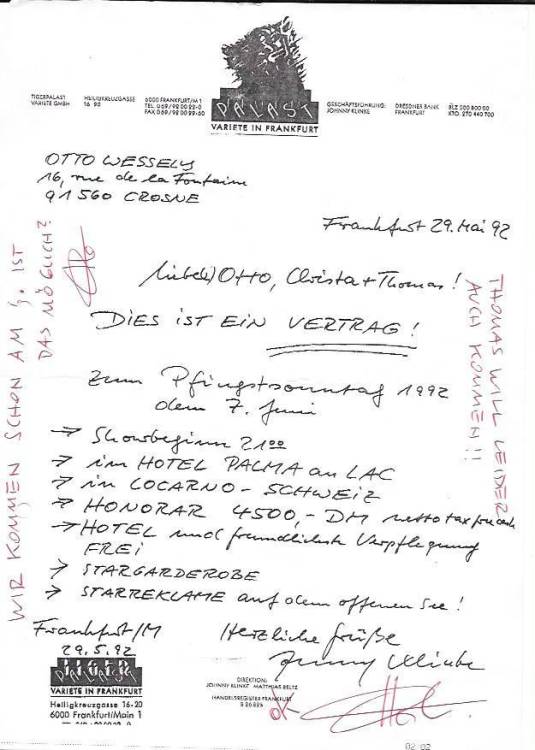 PALAST
VARIETE IN FRANKFURT
TIGERPALAST
VARIETE GMBH
HEILIGKREUZGASSE
16-20
6000 FRANKFURT/M 1
GESCHÄFTSFÜHRUNG:
JOHNNY KLINKE
DRESDNER BANK
FRANKFURT
OTTO WESSELY
16, rue de la Fontaine
91560 CROSNE
Frankfurt 29. Mai 92
Liebe(r) OTTO, Christa + Thomas!
DIES IST EIN VERTRAG!
zum Pfingstsonntag 1992
dem 7. Juni
→ Showbeginn 21 00
→ im HOTEL PALMA au LAC
→ in LOCARNO - SCHWEIZ
→ HONORAR 4500,- DM netto tax free cash
→ HOTEL und freundlichste Verpflegung
FREI
→ STARGARDEROBE
→ STARREKLAME auf dem offenen See!
Frankfurt/M
29.5.92
Herzliche Grüße
Johnny Klinke
TIGER
PALAST
VARIETE IN FRANKFURT
Heiligkreuzgasse 16-20
6000 Frankfurt/Main 1
DIREKTION:
JOHNNY KLINKE MATTHIAS BELTZ
HANDELSREGISTER FRANKFURT
WIR KOMMEN SCHON AM 5. IST
DAS MÖGLICH?
Otto
THOMAS WILL LEIDER
AUCH KOMMEN!!